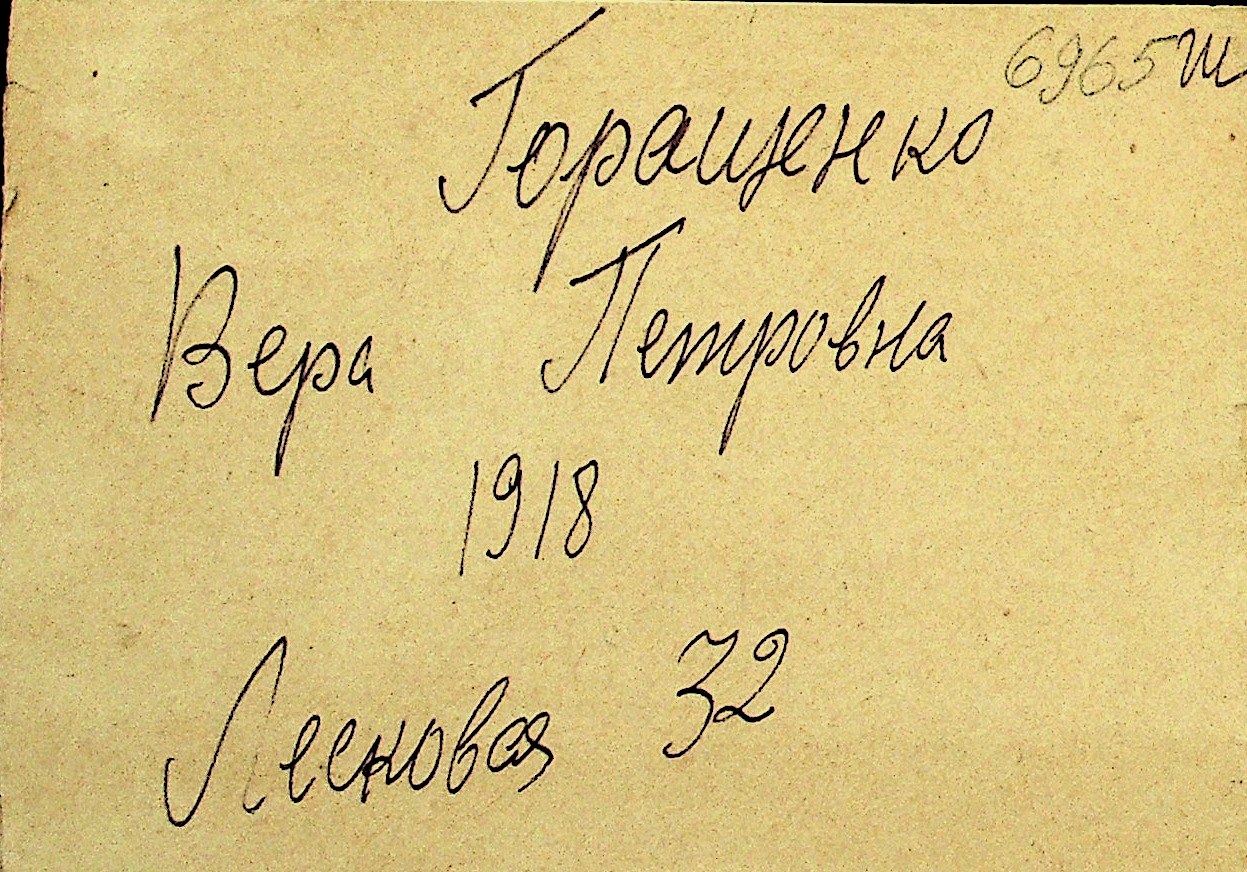 6965ш
Горащенко
Вера Петровна
1918
Лесковая 32